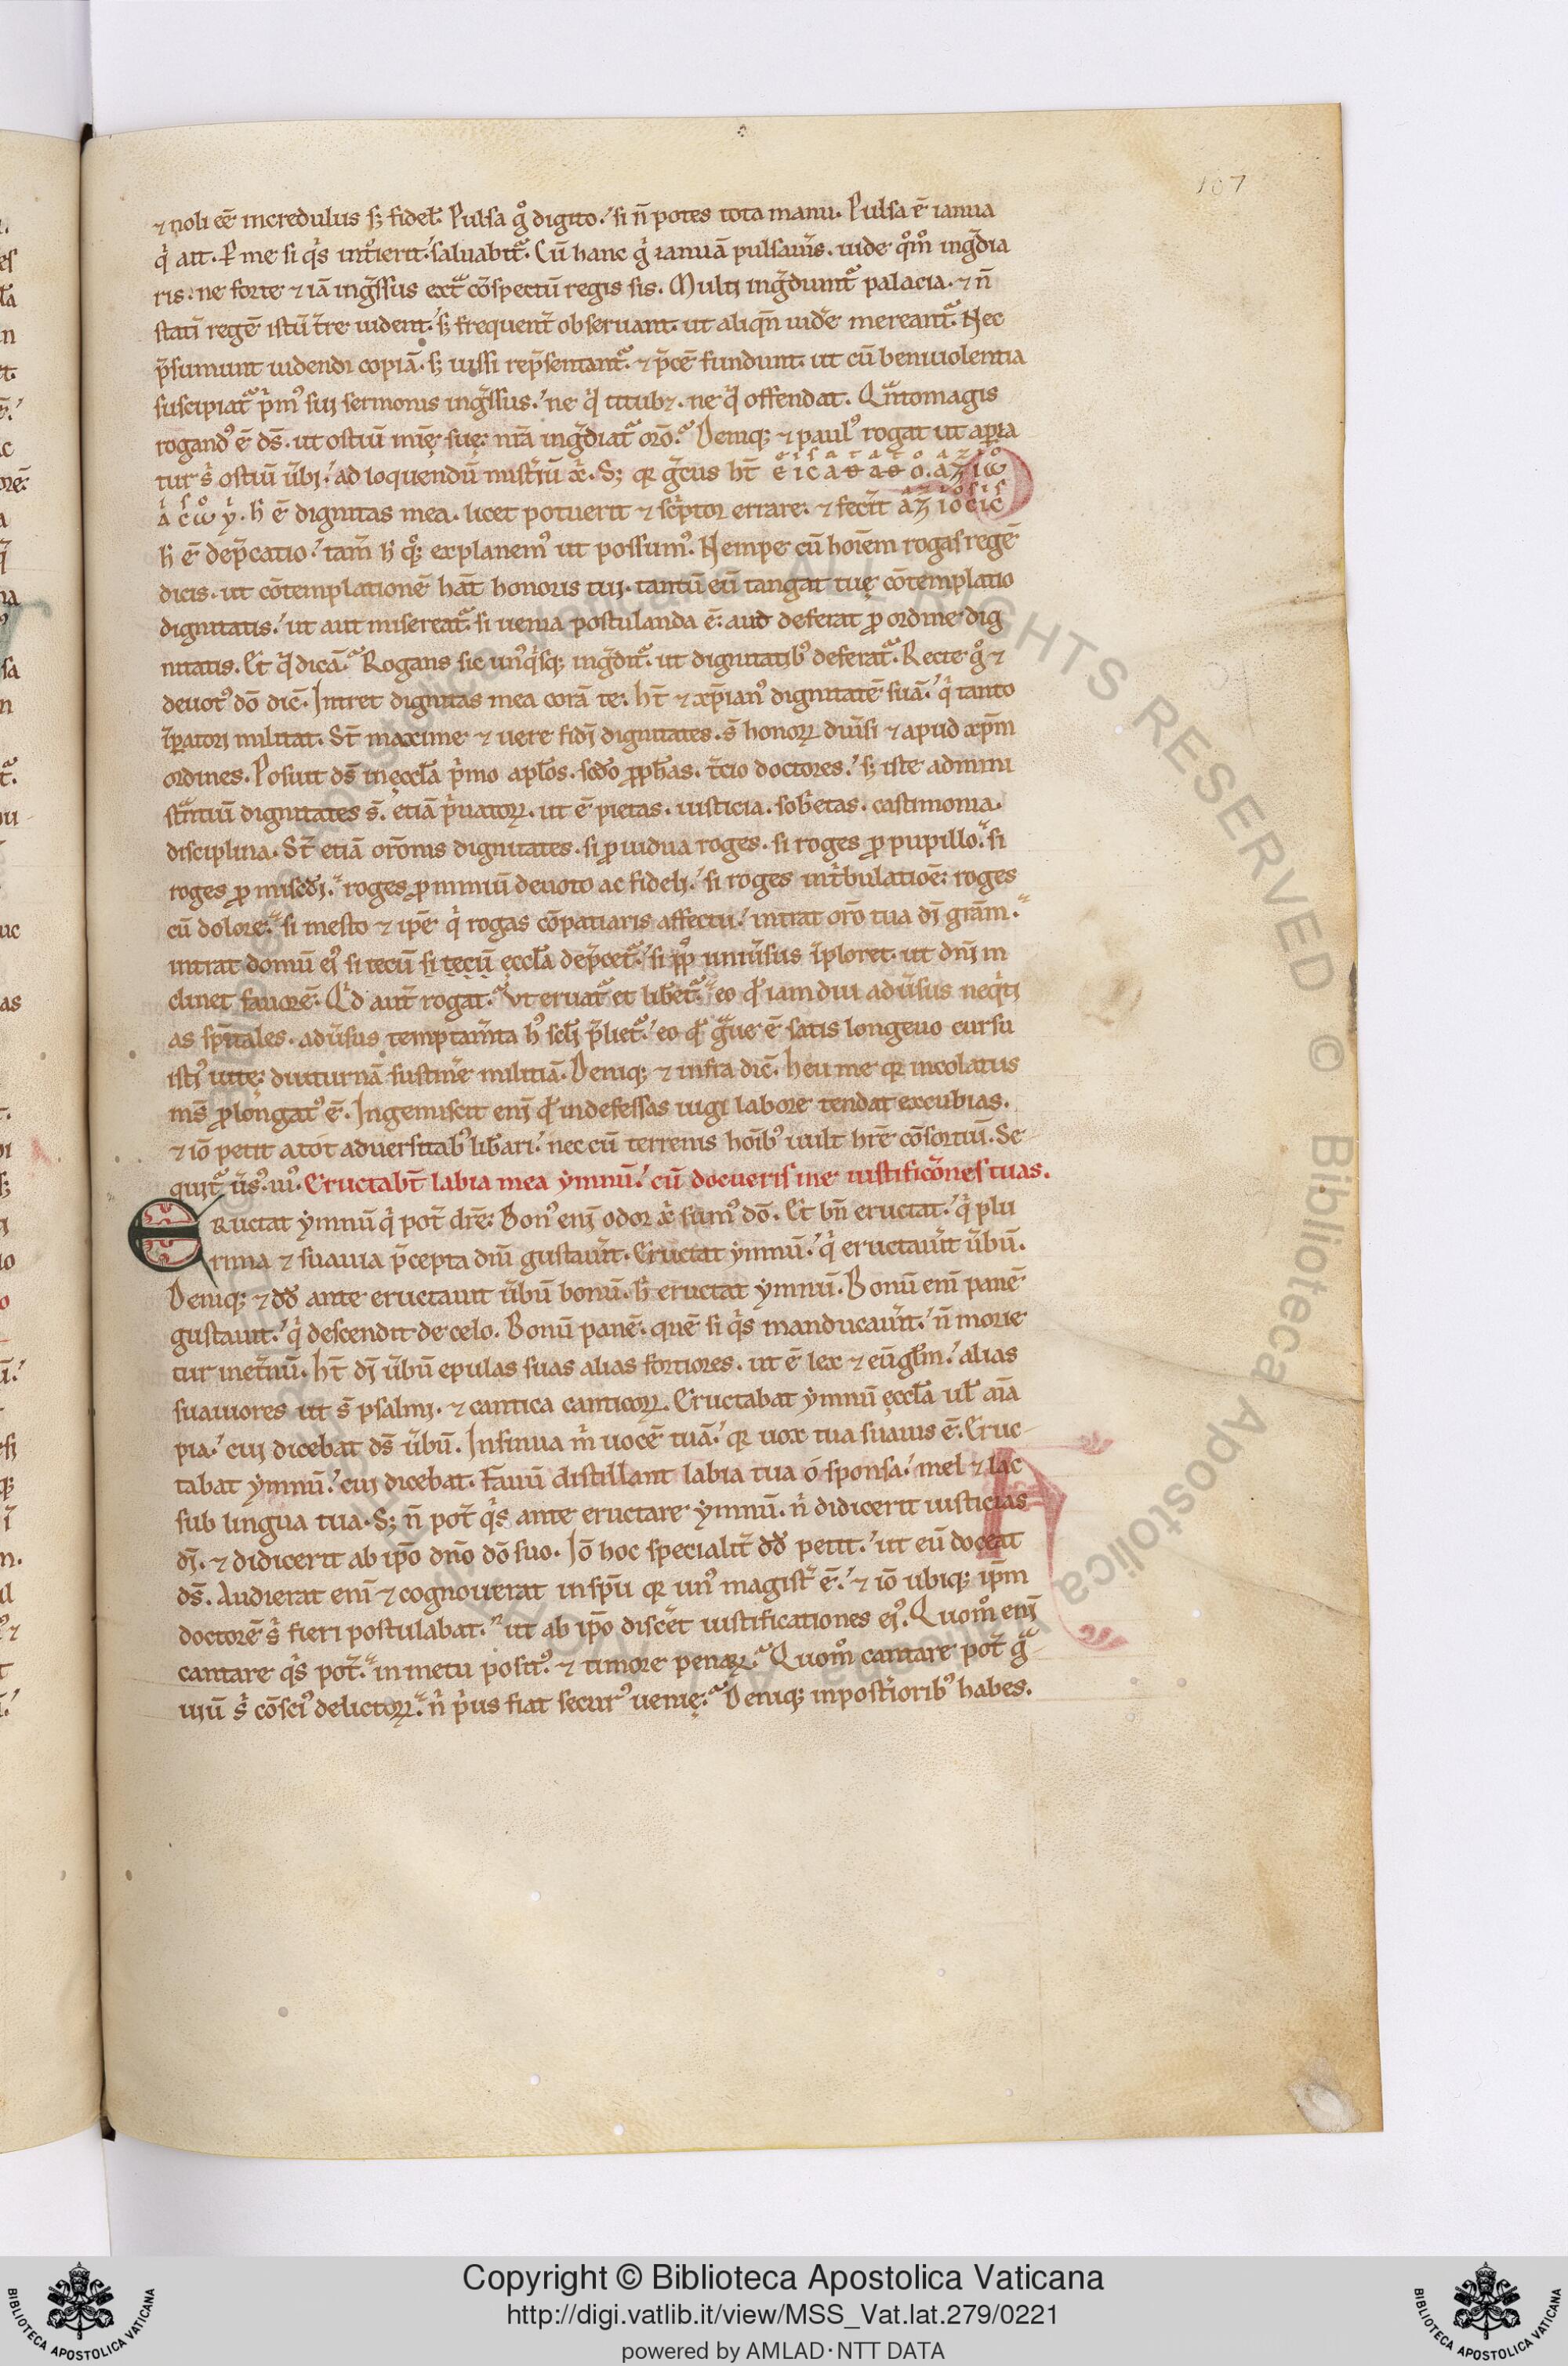 107
⁊ noli eē incredulus s; fidel̄. Pulsa gͦ digito. si n̄ potes tota manu. Pulsa ē ianua
qͥ ait. ꝑ me si qͥs int̉ierit saluabit᷑. Cū hanc gͥ ianuā pulsau̓is. uide qͦmͦ ing̓dia
ris. ne forte ⁊ iā ing̓ssus extᷓ cōspectū regis sis. Multi ing̓diunt᷑ palacia. ⁊ n̄
statī regē istū t̓re uident. s; frequent̓ obseruant. ut aliqn̄ uid̓e mereant᷑. Nec
p̄sumunt uidendi copiā. s; iussi rep̄sentant᷑. ⁊ p̄cē fundunt. ut cū beniuolentia
suscipiat᷑ pͥmꝰ sui sermonis ing̓ssus. ne qͥd titub&. ne qͥd offendat. Qͣntomagis
rogandꝰ ē ds̄. ut ostiū mīę suę nr̄a ing̓diat᷑ orō. Deniq; ⁊ paulꝰ rogat ut apia
tur sͥ ostiū u̓bi. ad loquendū mist̓iū xp̄ι. S; qr g̓cus ht̄
h̄ ē dignitas mea. licet potuerit ⁊ sc̓ptor errare. ⁊ fec̓it
h̄ ē dep̄catio. tam̄ h̄ qͦ; explanemꝰ ut possumꝰ. Nempe cū hoīem rogas regē
dicis. ut cōtemplationē hāt honoris tui. tantū eū tangat tuę cōtemplatio
dignitatis. ut aut misereat᷑ si uenia postulanda ē. aud deferat ꝓ ordine dig
nitatis. Et qͥd dicā. Rogans sic unꝰqͥsq; ing̓dit᷑. ut dignitatibꝰ deferat᷑. Recte gͦ ⁊
deuotꝰ dō dic̄. Intret dignitas mea corā te. ht̄ ⁊ xp̄ianꝰ dignitatē suā. qͥ tanto
īꝑatori militat. St̄ maxime ⁊ uere fidei dignitates. s̄ honorꝝ diu̓si ⁊ apud xp̄m
ordines. Posuit ds̄ in ęccl̄a pͥmo apl̄os. sc̄do ꝓph̄as. t̓cio doctores. s; iste admini
stᷓntiū dignitates s̄. etiā pͥuatorꝝ. ut ē pietas. iusticia. sobͥetas. castimonia.
disciplina. St̄ etiā orōnis dignitates. si ꝓ uidua roges. si roges ꝓ pupillo. si
roges ꝓ mis̄cdi. roges ꝓ nimiū deuoto ac fideli. si roges int̓bulatioē. roges
cū dolore. si mesto ⁊ ip̄e qͥ rogas cōpatiaris affectu. intrat orō tua di grām.
intrat domū eiꝰ si tecū si tecū ęccl̄a dep̄cet᷑. si pp̄ls uniu̓sus īploret. ut dnī in
clinet fauorē. Qͥd aut̄ rogat. Vt eruat᷑ et lib̓et᷑. eo qd̄ iam diu adu̓sus neq̓ti
as spīt̄ales. adu̓sus temptam̓ta hꝰ sc̄li p̄liet᷑. eo qd̄ gᷓue ē satis longeuo cursu
istiꝰ uitę diuturnā sustin̓e militiā. Deniq; ⁊ infra dic̄. heu me qr incolatus
mȝ ꝓlongatꝰ ē. Ingemiscit eni qd̄ indefessas iugi labore tendat excubias.
⁊ iō petit a tot aduersitabꝰ lib̓ari. nec cū terrenis hoībꝰ uult hr̄e cōsortiū. Se
quit᷑ u̓s.ꝰ iiiꝰ. Eructabt̄ labia mea ymnū. cū docueris me iustificōnes tuas.
ERuctat ymnū qͥ pot̄ dr̄e. Bonꝰ eni odor xp̄ι sumꝰ dō. Et bn̄ eructat. qͥ plu
rima ⁊ suauia p̄cepta dnī gustau̓it. Eructat ymnū. qͥ eructau̓it u̓bū.
Deniq; ⁊ dd̄ ante eructauit u̓bū bonū. h̄ eructat ymnū. Bonū enī panē
gustauit. qͥ descendit de celo. Bonū panē. quē si qͥs manducau̓it. n̄ morie
tur inet̓nū. ht̄ di u̓bū epulas suas alias fortiores. ut ē lex ⁊ eūgl̄m. alias
suauiores ut s̄ psalmi. ⁊ cantica canticorꝝ. Eructabat ymnū ęccl̄a ul̄ aīa
pia. cui dicebat ds̄ u̓bū. Insinua mͥ uocē tuā. qr uox tua suauis ē. Eruc
tabat ymnū. cui dicebat. Fauū distillant labia tua ó sponsa. mel ⁊ lac
sub lingua tua. S; n̄ pot̄ qͥs ante eructare ymnū. nͥ didicerit iusticias
di. ⁊ didicerit ab ip̄o dn̄o dō suo. Iō hoc specialit̓ dd̄ petit. ut eū doceat
ds̄. Audierat enī ⁊ cognouerat in spū qr unꝰ magist̓ ē. ⁊ iō ubiq; ip̄m
doctorē sͥ fieri postulabat. ut ab ip̄o disc̓et iustificationes eiꝰ. Quomͦ eni
cantare qͥs pot̄. in metu positꝰ ⁊ timore penarꝝ. Quomͦ cantare pot̄ gᷓ
uiū sͥ cōsciꝰ delictorꝝ. nͥ pͥus fiat securꝰ uenię. Deniq; in post̓ioribꝰ habes.
Copyright © Biblioteca Apostolica Vaticana
http://digi.vatlib.it/view/MSS_Vat.lat.279/0221
powered by AMLAD·NTT DATA